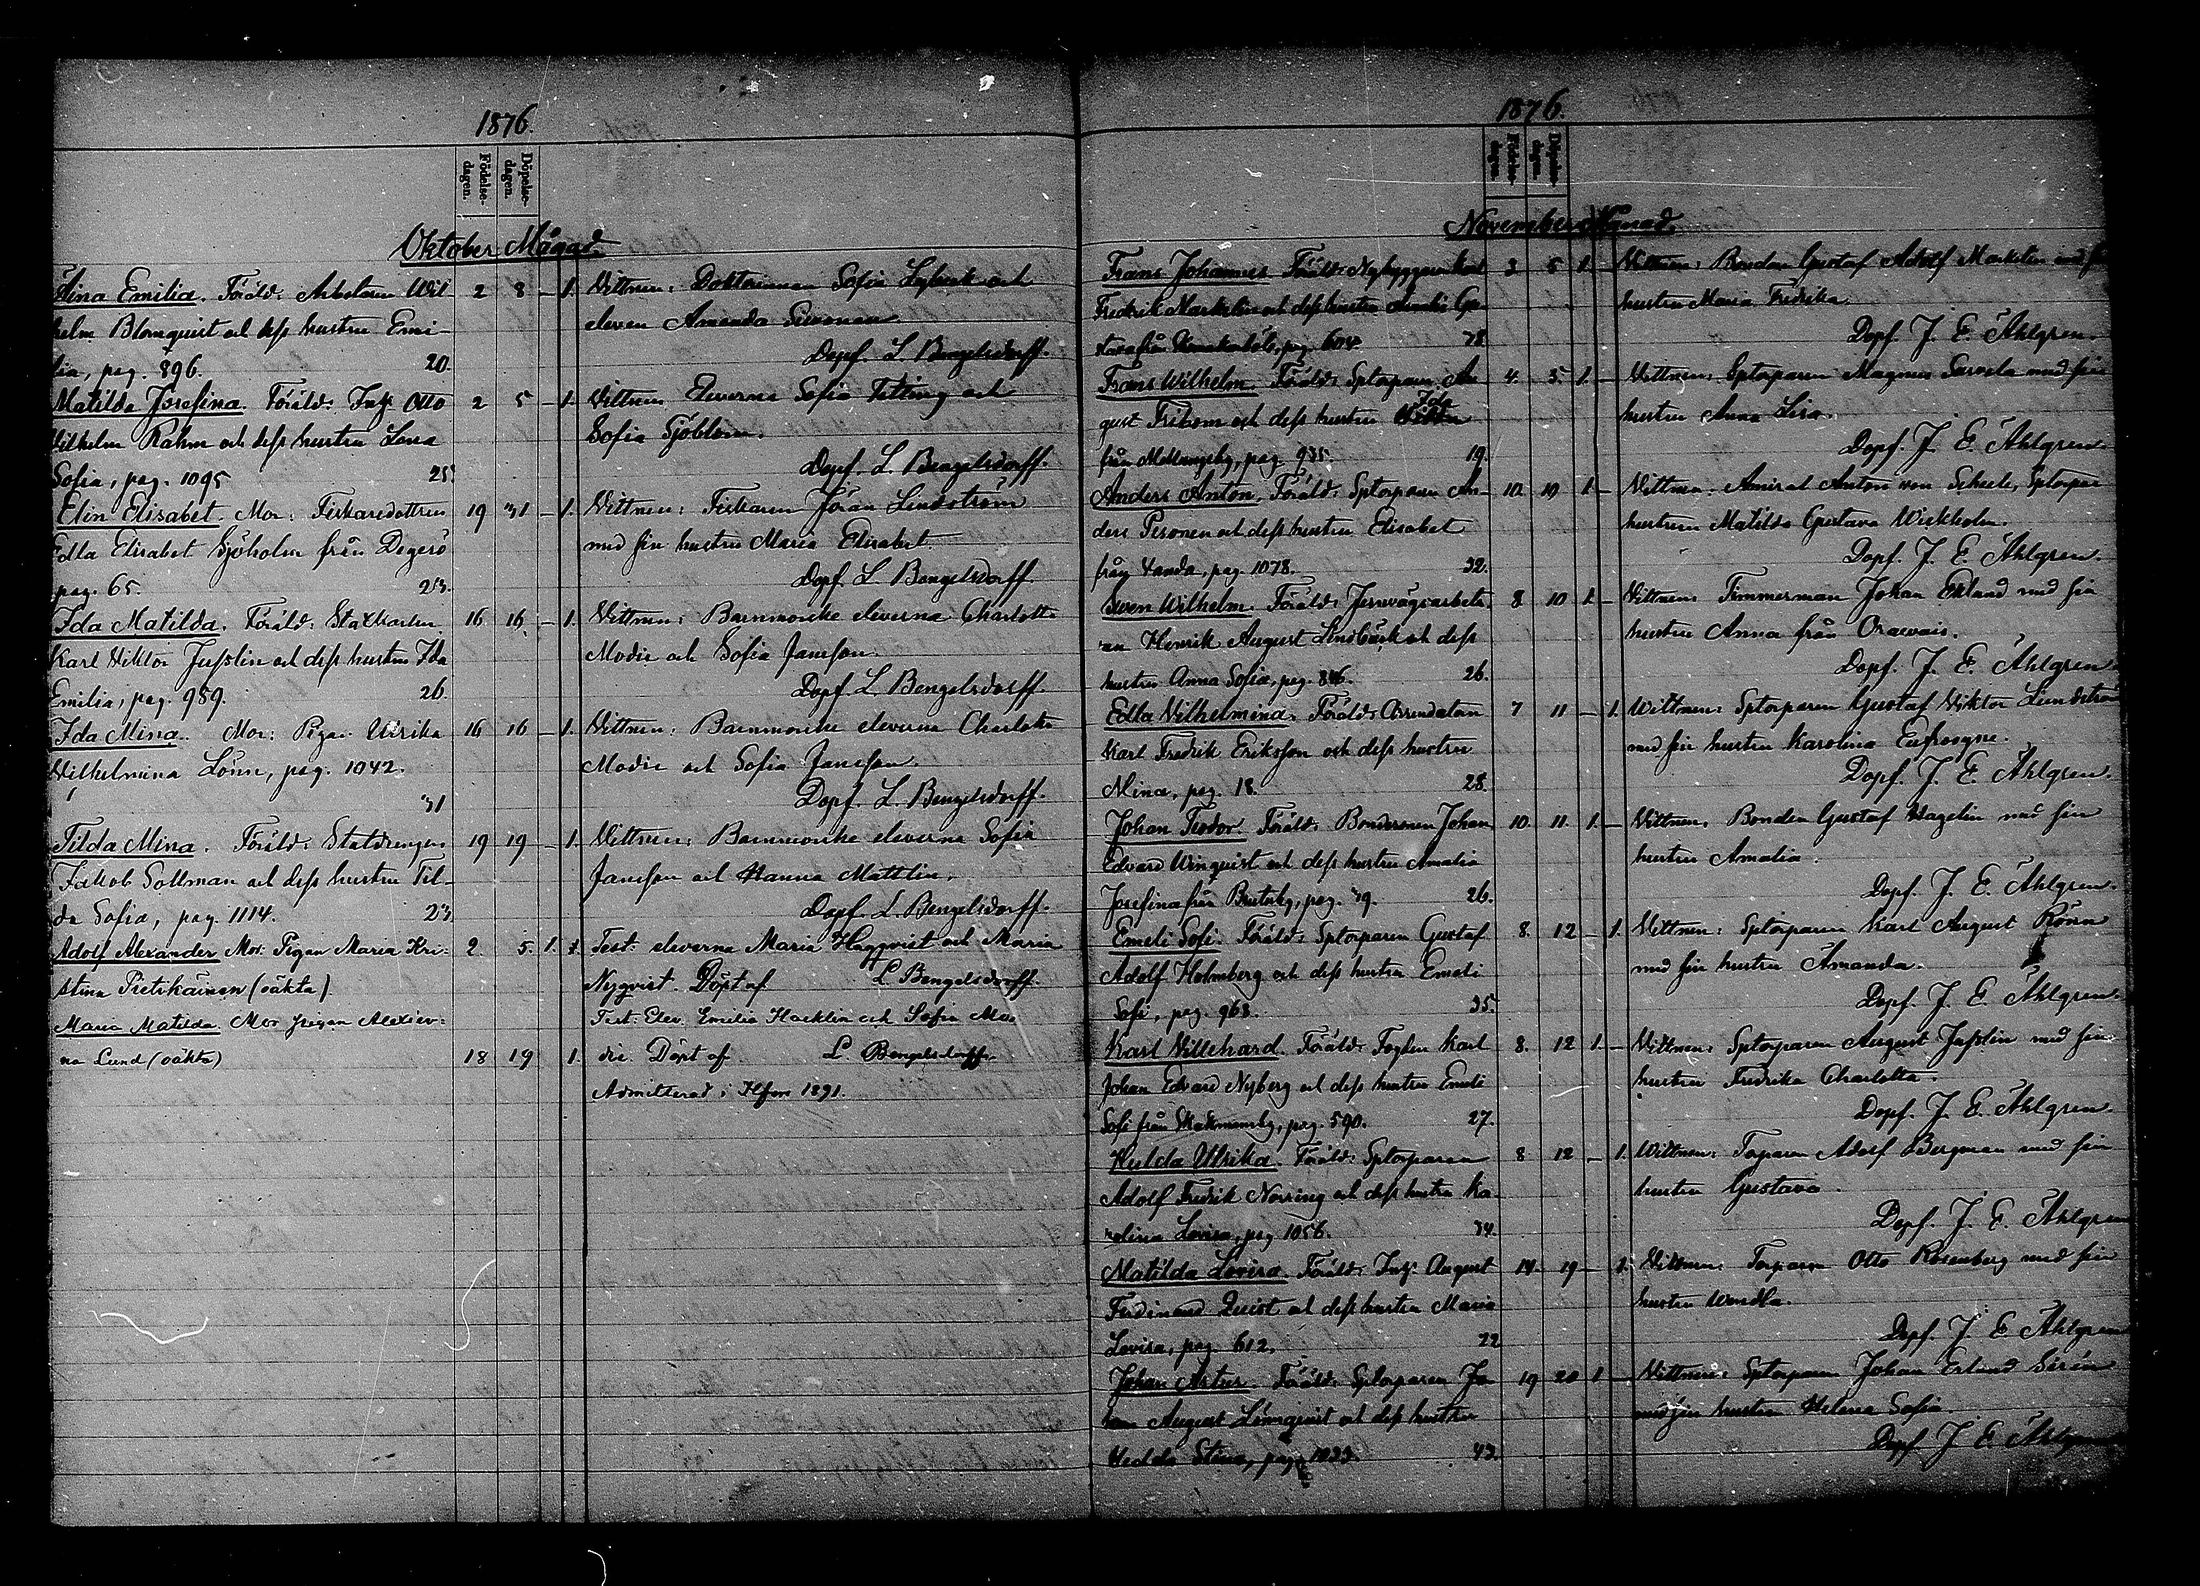 1876.
Födelse-dagen. Döpelse-dagen.
Oktober Månad.
Aina Emilia. Föräld: Arbetaren Wil- 2 8 – 1. Vittnen: Doktorinnan Sofia Lybeck och
helm Blomquist och dess hustru Emi- eleven Amanda
lia, pag. 896. 20. Döpf. L. Bengelsdorff.
Matilda Josefina. Föräld: Inh. Otto 2 5 – 1. Vittnen: Eleverna Sofia Telling och
Vilhelm Råhm och dess hustru Lova Sofia Sjöblom.
Sofia, pag. 1095 25. Döpf. L. Bengelsdorff.
Elin Elisabet. Mor: Fiskaredottren 19 31 – 1. Vittnen: Fiskaren Jöran Lindström
Edla Elisabet Sjöholm från Degerö med sin hustru Maria Elisabet.
pag. 65. 23. Döpf. L. Bengelsdorff.
Ida Matilda. Föräld: Statkarlen 16 16 – 1. Vittnen: Barnmorske eleverna Charlotte
Karl Viktor Jusslin och dess hustru Ida Modie och Sofia Jansson.
Emilia, pag. 989. 26. Döpf. L. Bengelsdorff.
Ida Mina. Mor: Pigan Ulrika 16 16 – 1. Vittnen: Barnmorske eleverna Charlotte
Vilhelmina Lönn, pag. 1042. Modie och Sofia Jansson.
31 Döpf. L. Bengelsdorff.
Tilda Mina. Föräld: Statdrengen 19 19 – 1. Vittnen: Barnmorske eleverna Sofia
Jakob Sollman och dess hustru Til- Jansson och Hanna Mattlin.
da Sofia, pag. 1114. 23 Döpf. L. Bengelsdorff.
Adolf Alexander Mor: Pigan Maria Kri- 2. 5. 1. Test: eleverna Maria Haggvist och Maria
stina Pietikäinen (oäkta) Nyqvist. Döpt af L. Bengelsdorff.
Maria Matilda Mor pigan Alexiev- Test: Elev. Emilia Hacklin och Sofia Mo
na Lund (oäkta) 18 19 1. die. Döpt af L. Bengelsdorff.
Admitterad i Hfors 1891.
1876.
Födelse-dagen. Döpelse-dagen.
November Månad.
Frans Johannes Föräld: Nybyggaren Karl 3 5 1. – Vittnen: Bonden Gustaf Adolf Markelin med sin
Fredrik Markelin och dess hustru Amalia Gu hustru Maria Fredrika.
stava från pag. 604. 28 Döpf. J. E. Åhlgren.
Frans Wilhelm. Föräld: Sptorparen Au 4. 5. 1. – Vittnen: Sptorparen Magnus med sin
gust Friborn och dess hustru Ida hustru Anna Lisa.
från Mellungsby, pag. 935. 19. Döpf. J. E. Åhlgren.
Anders Anton. Föräld: Sptorparen An- 10. 10 1 – Vittnen: Amiral Anton von Schele, Sptorpar
ders Personen och dess hustru Elisabet hustrun Matilda Gustava Wickholm.
från Vanda, pag. 1078. 32. Döpf. J. E. Åhlgren.
Swen Wilhelm. Föräld: Jernvägsarbeta- 8. 10 1. – Vittnen: Timmerman Johan Eklund med sin
ren Henrik August Lindbäck och dess hustru Anna från Oravais.
hustru Anna Sofia, pag. 846. 26. Döpf. J. E. Åhlgren
Edla Vilhelmina. Föräld: Arrendatorn 7 11 – 1. Wittnen: Sptorparen Gustaf Viktor Lundström
Karl Fredrik Eriksson och dess hustru med sin hustru Karolina Eufrosyne.
Mina, pag. 18. 28. Döpf. J. E. Åhlgren.
Johan Teodor. Föräld: Bondesonen Johan 10. 11. 1. – Vittnen: Bonden Gustaf Hagelin med sin
Edvard Winquist och dess hustru Amalia hustru Amalia.
Josefina från Botby, pag. 79. 26. Döpf. J. E. Åhlgren.
Emeli Sofi. Föräld: Sptorparen Gustaf 8. 12 – 1. Vittnen: Sptorparen Karl August Rönn
Adolf Holmberg och dess hustru Emeli med sin hustru Amanda.
Sofi, pag. 968. 35. Döpf. J. E. Åhlgren.
Karl Villehard. Föräld: Fogden Karl 8. 12 1 – Vittnen: Sptorparen August Jusslin med sin
Johan Edvard Nyberg och dess hustru Emeli hustru Fredrika Charlotta.
Sofi från Stakmansby, pag. 590. 27. Döpf. J. E. Åhlgren.
Hulda Ulrika. Föräld: Sptorparen 8 12 – 1. Wittnen: Torparen Adolf Bergman med sin
Adolf Fredrik Norring och dess hustru Ka hustru Gustava.
rolina Lovisa, pag 1056. 34. Döpf. J. E. Åhlgren
Matilda Lovisa. Föräld: Inh. August 14. 19 – 1. Vittnen: Torparen Otto Rosenberg med sin
Ferdinand Quist och dess hustru Maria hustru Wendla.
Lovisa, pag. 612. 22 Döpf. J. E. Åhlgren
Johan Artur. Föräld: Sptorparen Jo 19 20 1 – Vittnen: Sptorparen Johan Erland Sirén
han August Lönnquist och dess hustru med sin hustru Helena Sofia.
Hedda Stina, pag. 1033. 43. Döpf. J. E. Åhlgren